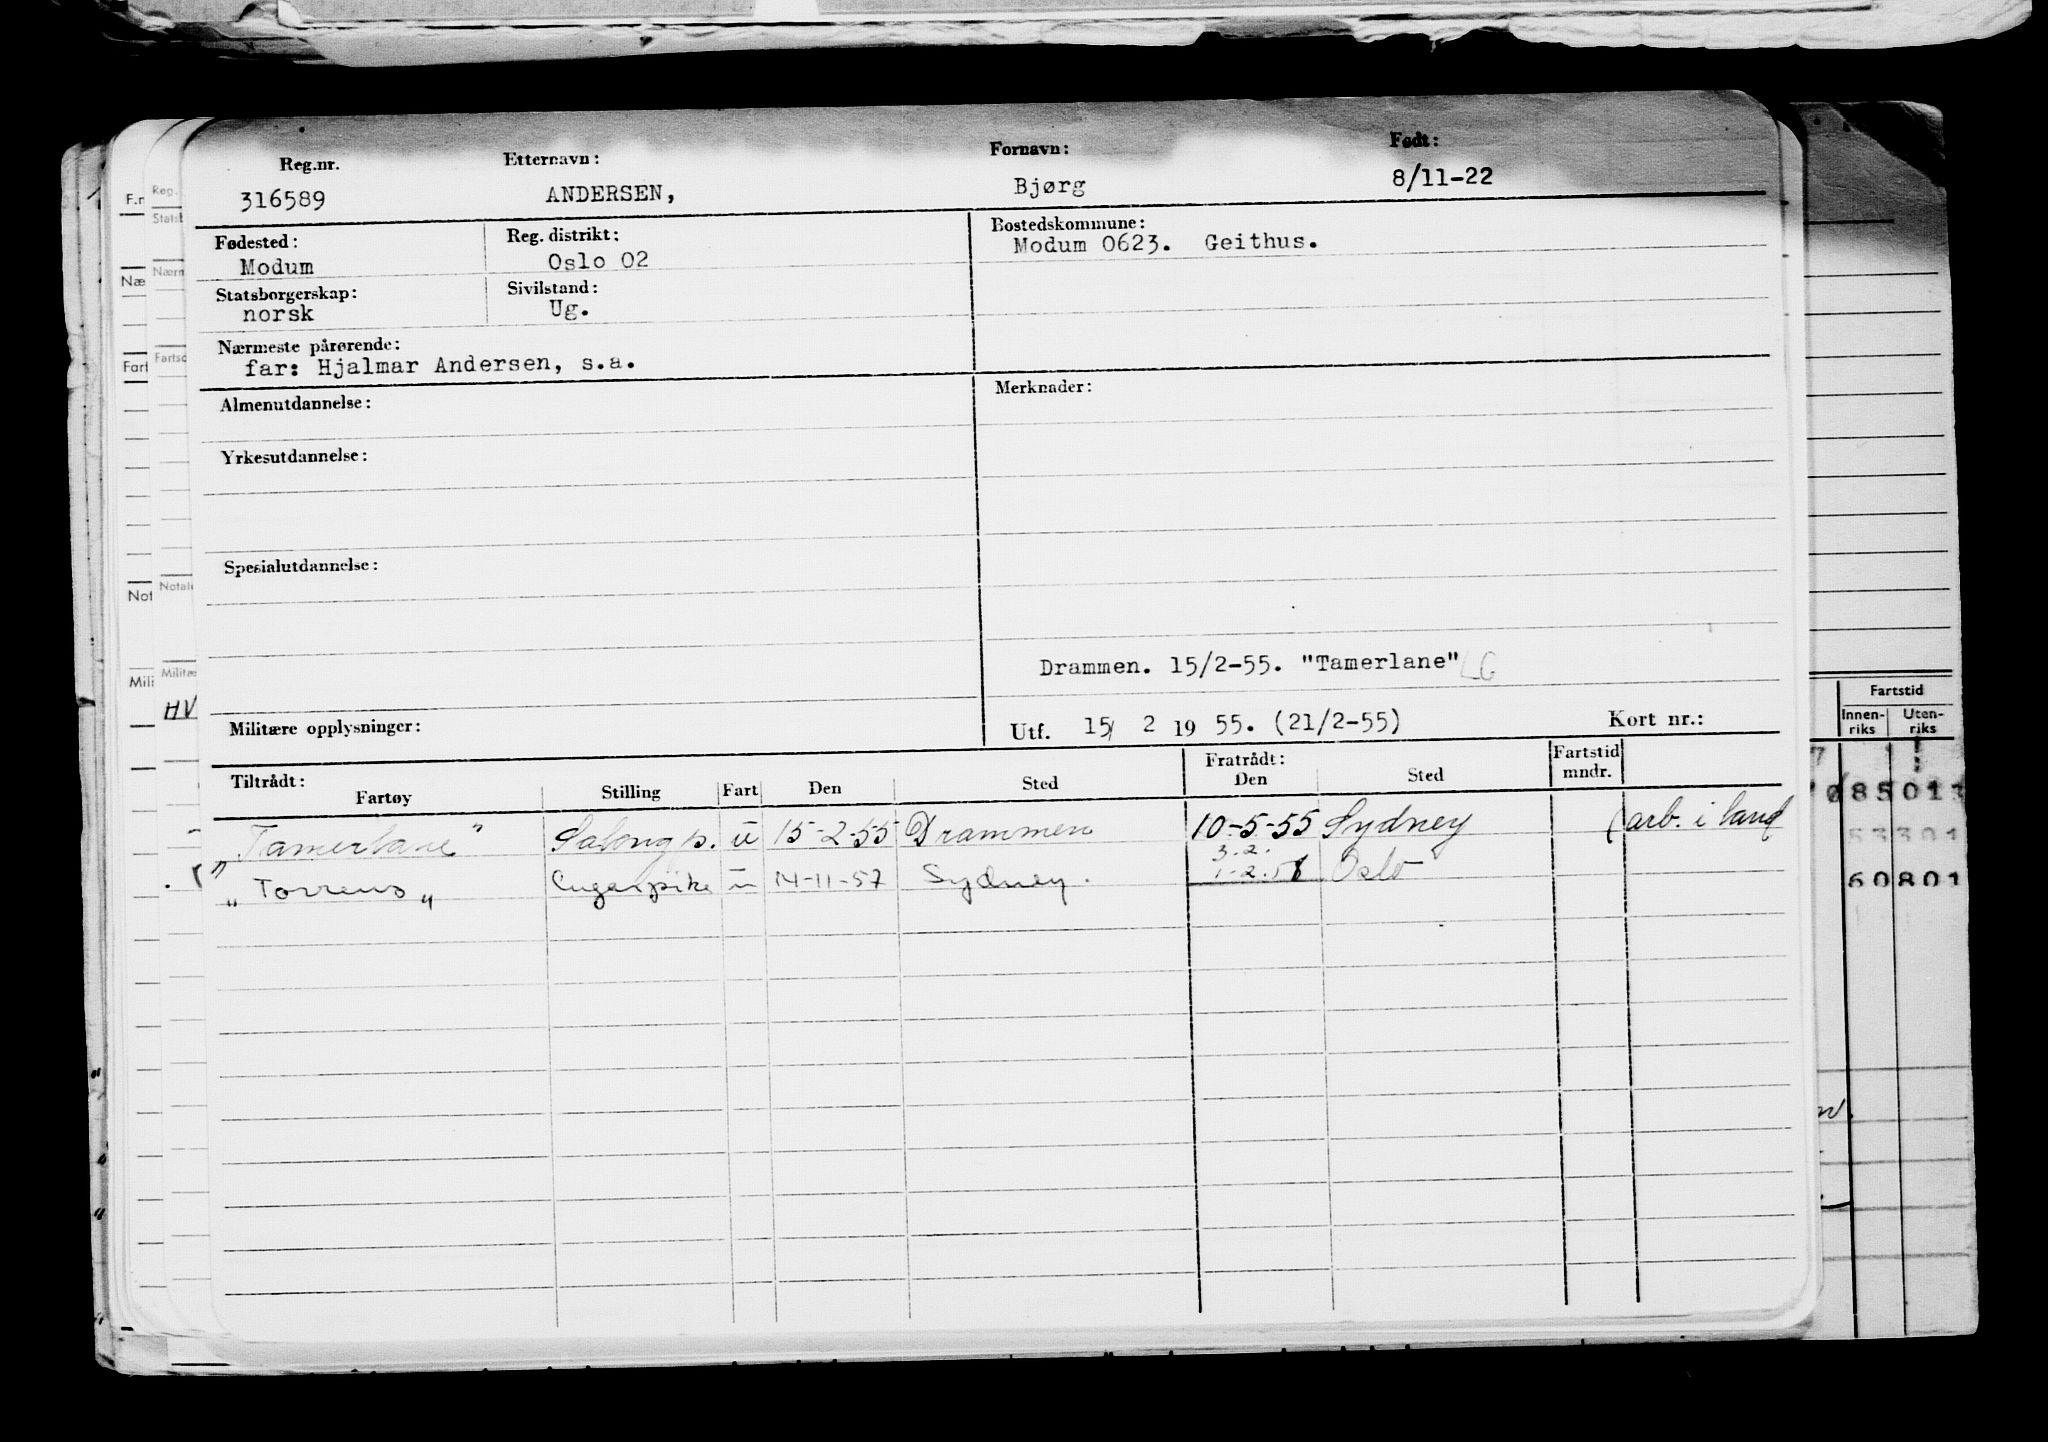 Reg.nr. Etternavn: Fornavn: Født:
316589 ANDERSEN, Bjørg 8/11-22
Fødested: Reg. distrikt: Bostedskommune:
Modum Oslo 02 Modum 0623. Geithus.
Statsborgerskap: Sivilstand:
norsk Ug.
Nærmeste pårørende:
far: Hjalmar Andersen, s.a.
Almenutdannelse: Merknader:
Yrkesutdannelse:
Spesialutdannelse:
Drammen. 15/2-55. "Tamerlane" LG
Militære opplysninger: Utf. 15/ 2 19 55. (21/2-55) Kort nr.:
Tiltrådt: Fratrådt: Fartstid
Fartøy Stilling Fart Den Sted Den Sted mndr.
"Tamerlane" Salongp. u 15-2-55 Drammen 10-5-55 Sydney (arb. i land
3.2.
"Torrens" Lugarpike u 14-11-57 Sydney. Oslo
Fartstid
Innen- Uten-
riks riks
85 01
53 301
60 801
F.n
Reg.
Stats
Næ
Nærm
Fart
Fartsc
Not
Notale
Mili
Militæ
HV